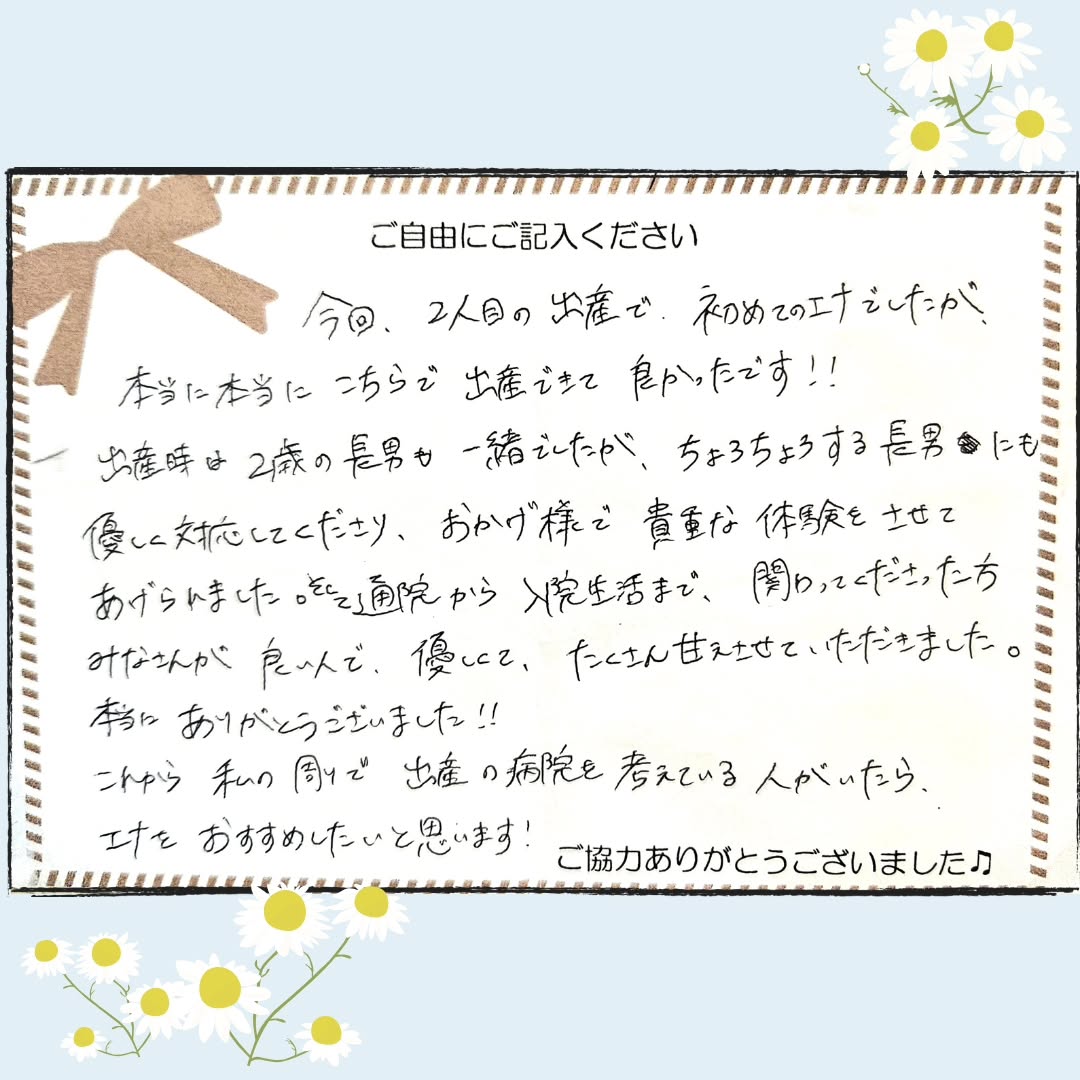 ご自由にご記入ください
今回、2人目の出産で、初めてのエナでしたが、
本当に本当に こちらで 出産できて 良かったです!!
出産時は 2歳の長男も 一緒でしたが、ちょろちょろする長男にも
優しく対応してくださり、おかげ様で 貴重な 体験を させて
あげられました。そして通院から 入院生活まで、関わってくださった方
みなさんが 良い人で、優しくて、たくさん甘えさせていただきました。
本当に ありがとうございました!!
これから 私の 周りで 出産の病院を 考えている 人がいたら、
エナを おすすめしたいと思います!
ご協力ありがとうございました♫